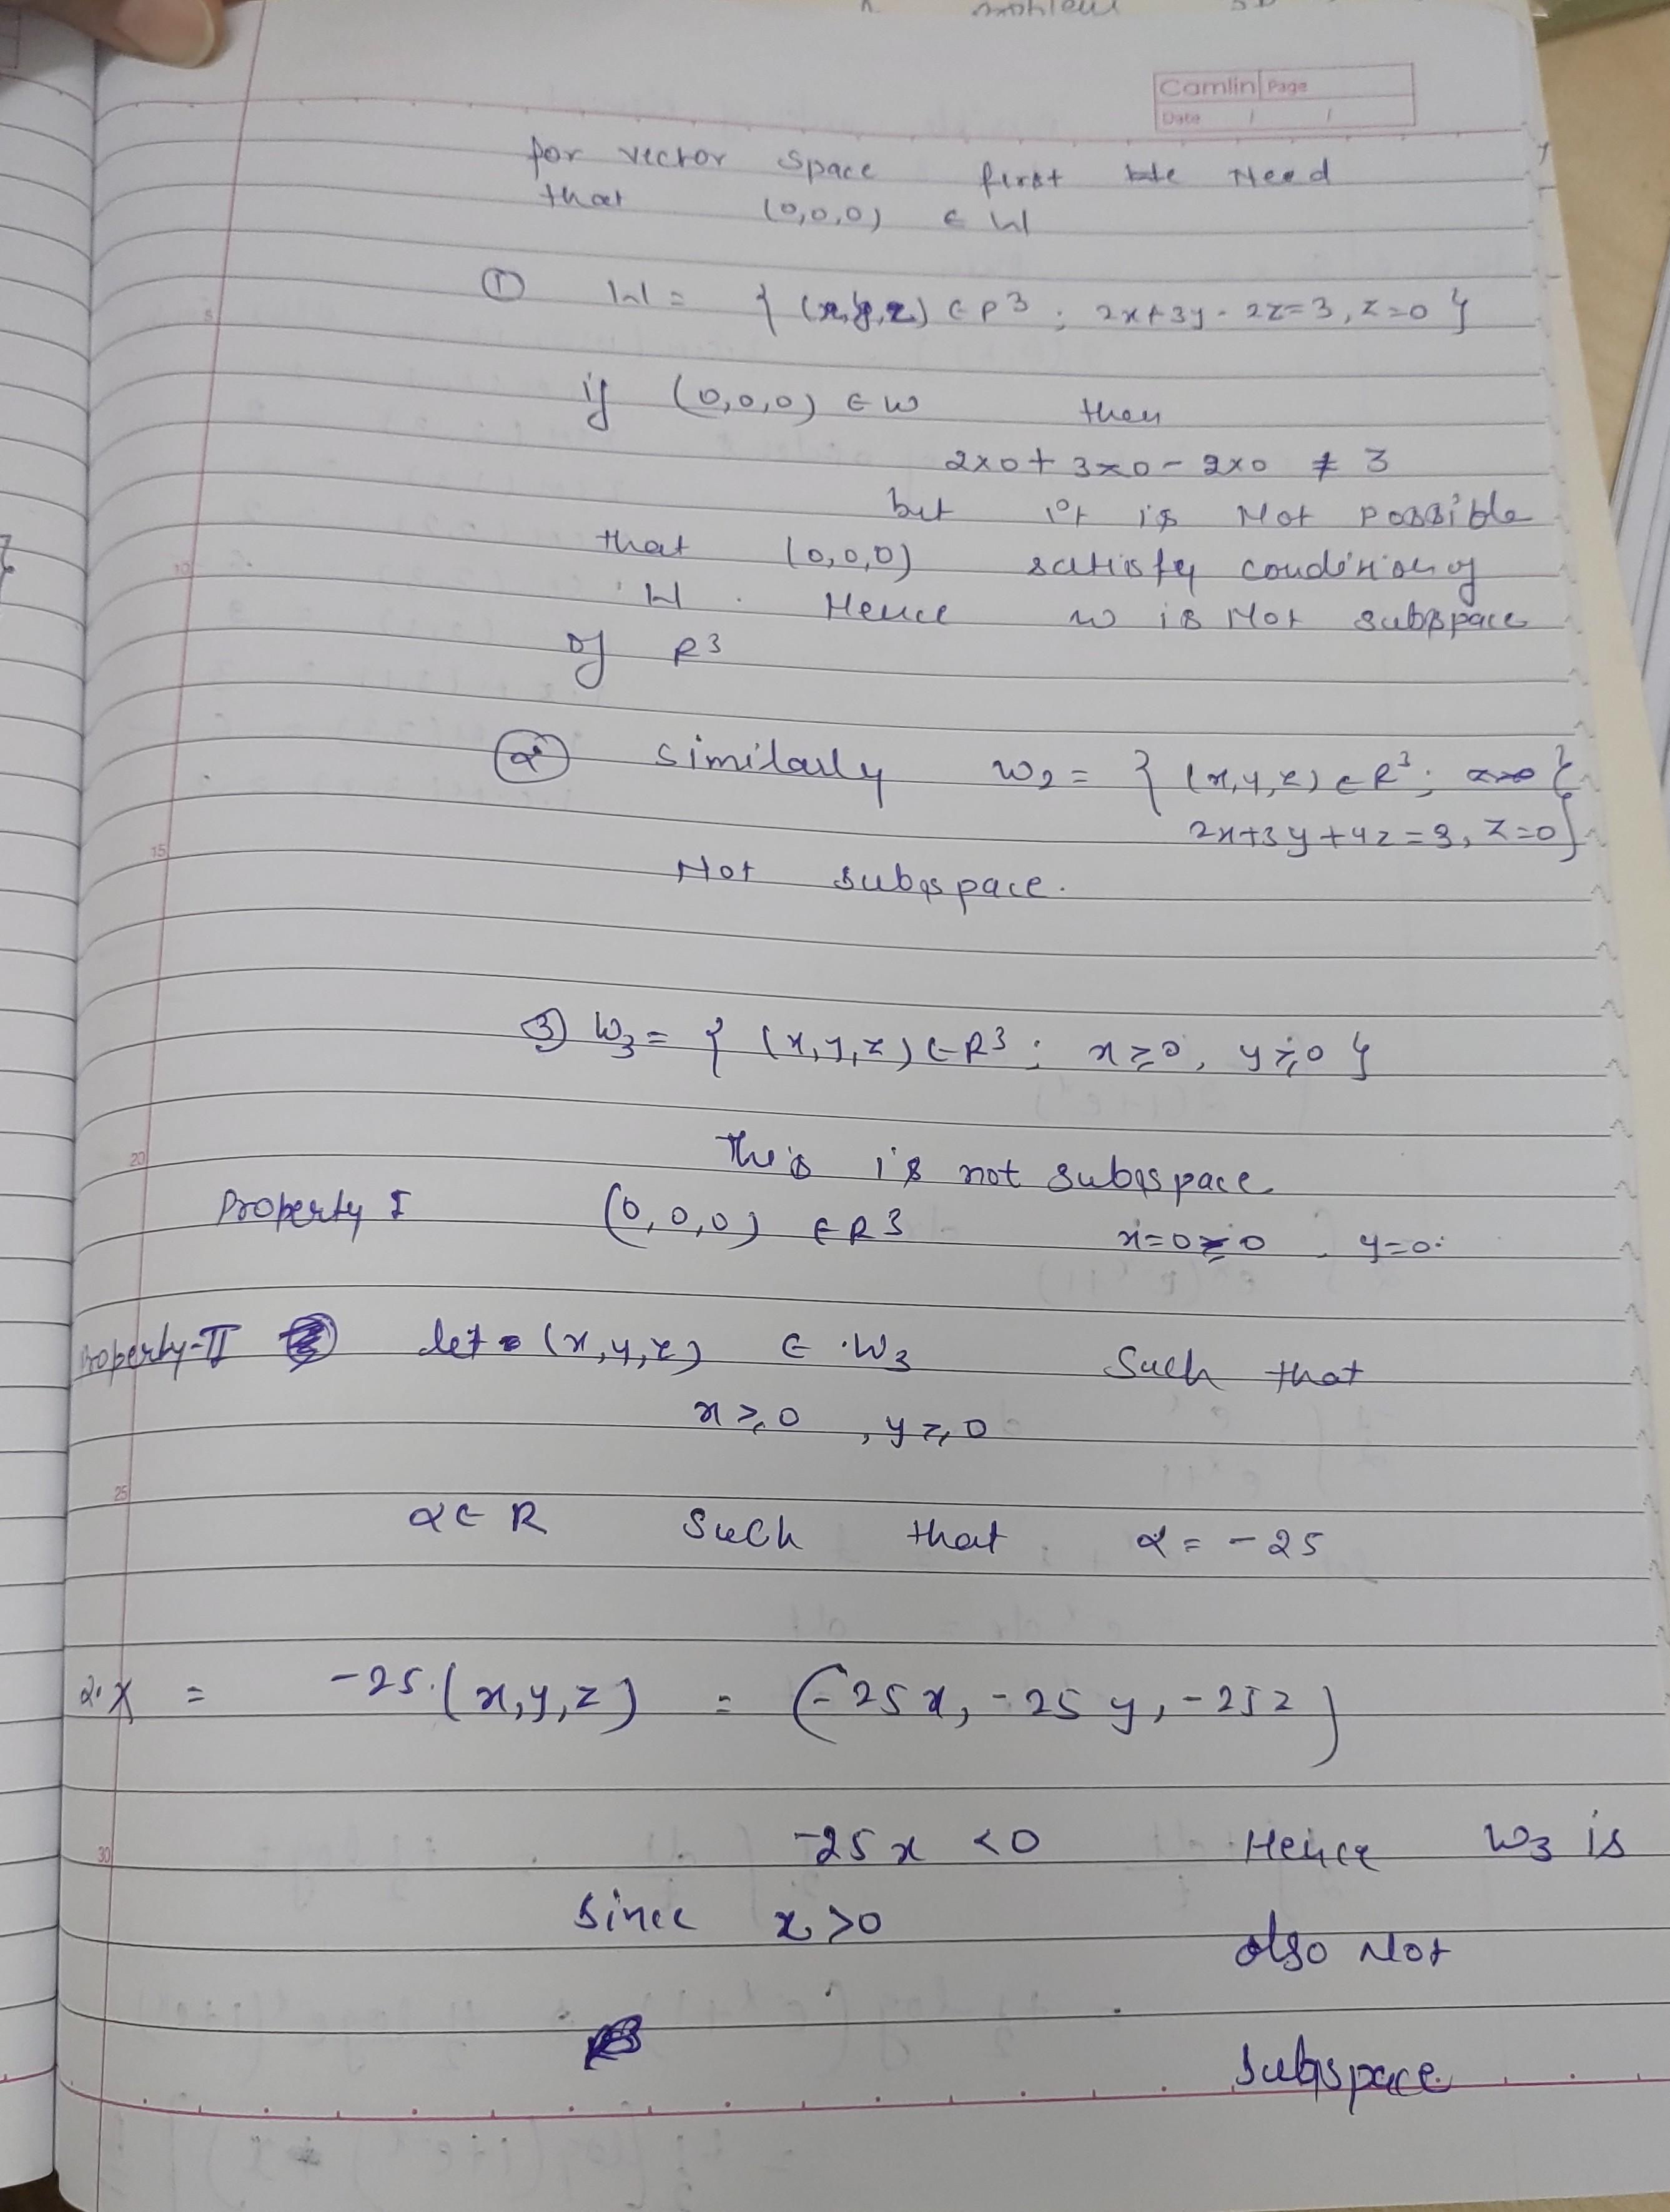 problem
Camlin Page
Date / /
for vector space first we Need
that (0,0,0) ∈ W
① W = { (x,y,z) ∈ R³ ; 2x+3y-2z=3, z=0 }
if (0,0,0) ∈ W then
2×0 + 3×0 - 2×0 ≠ 3
but it is Not possible
that (0,0,0) satisfy condition of
W. Hence W is Not subspace
of R³
② similarly W₂ = { (x,y,z) ∈ R³ ; }
2x+3y+4z=3, z=0}
Not subspace.
③ W₃ = { (x,y,z) ∈ R³ ; x≥0, y≥0 }
This is not subspace
Property I (0,0,0) ∈ R³ x=0≥0, y=0
Property-II let (x,y,z) ∈ W₃ Such that
x≥0, y≥0
α ∈ R Such that α = -25
α.X = -25.(x,y,z) = (-25x, -25y, -25z)
-25x <0 Hence W₃ is
Since x>0 also Not
subspace
5
10
15
20
25
30